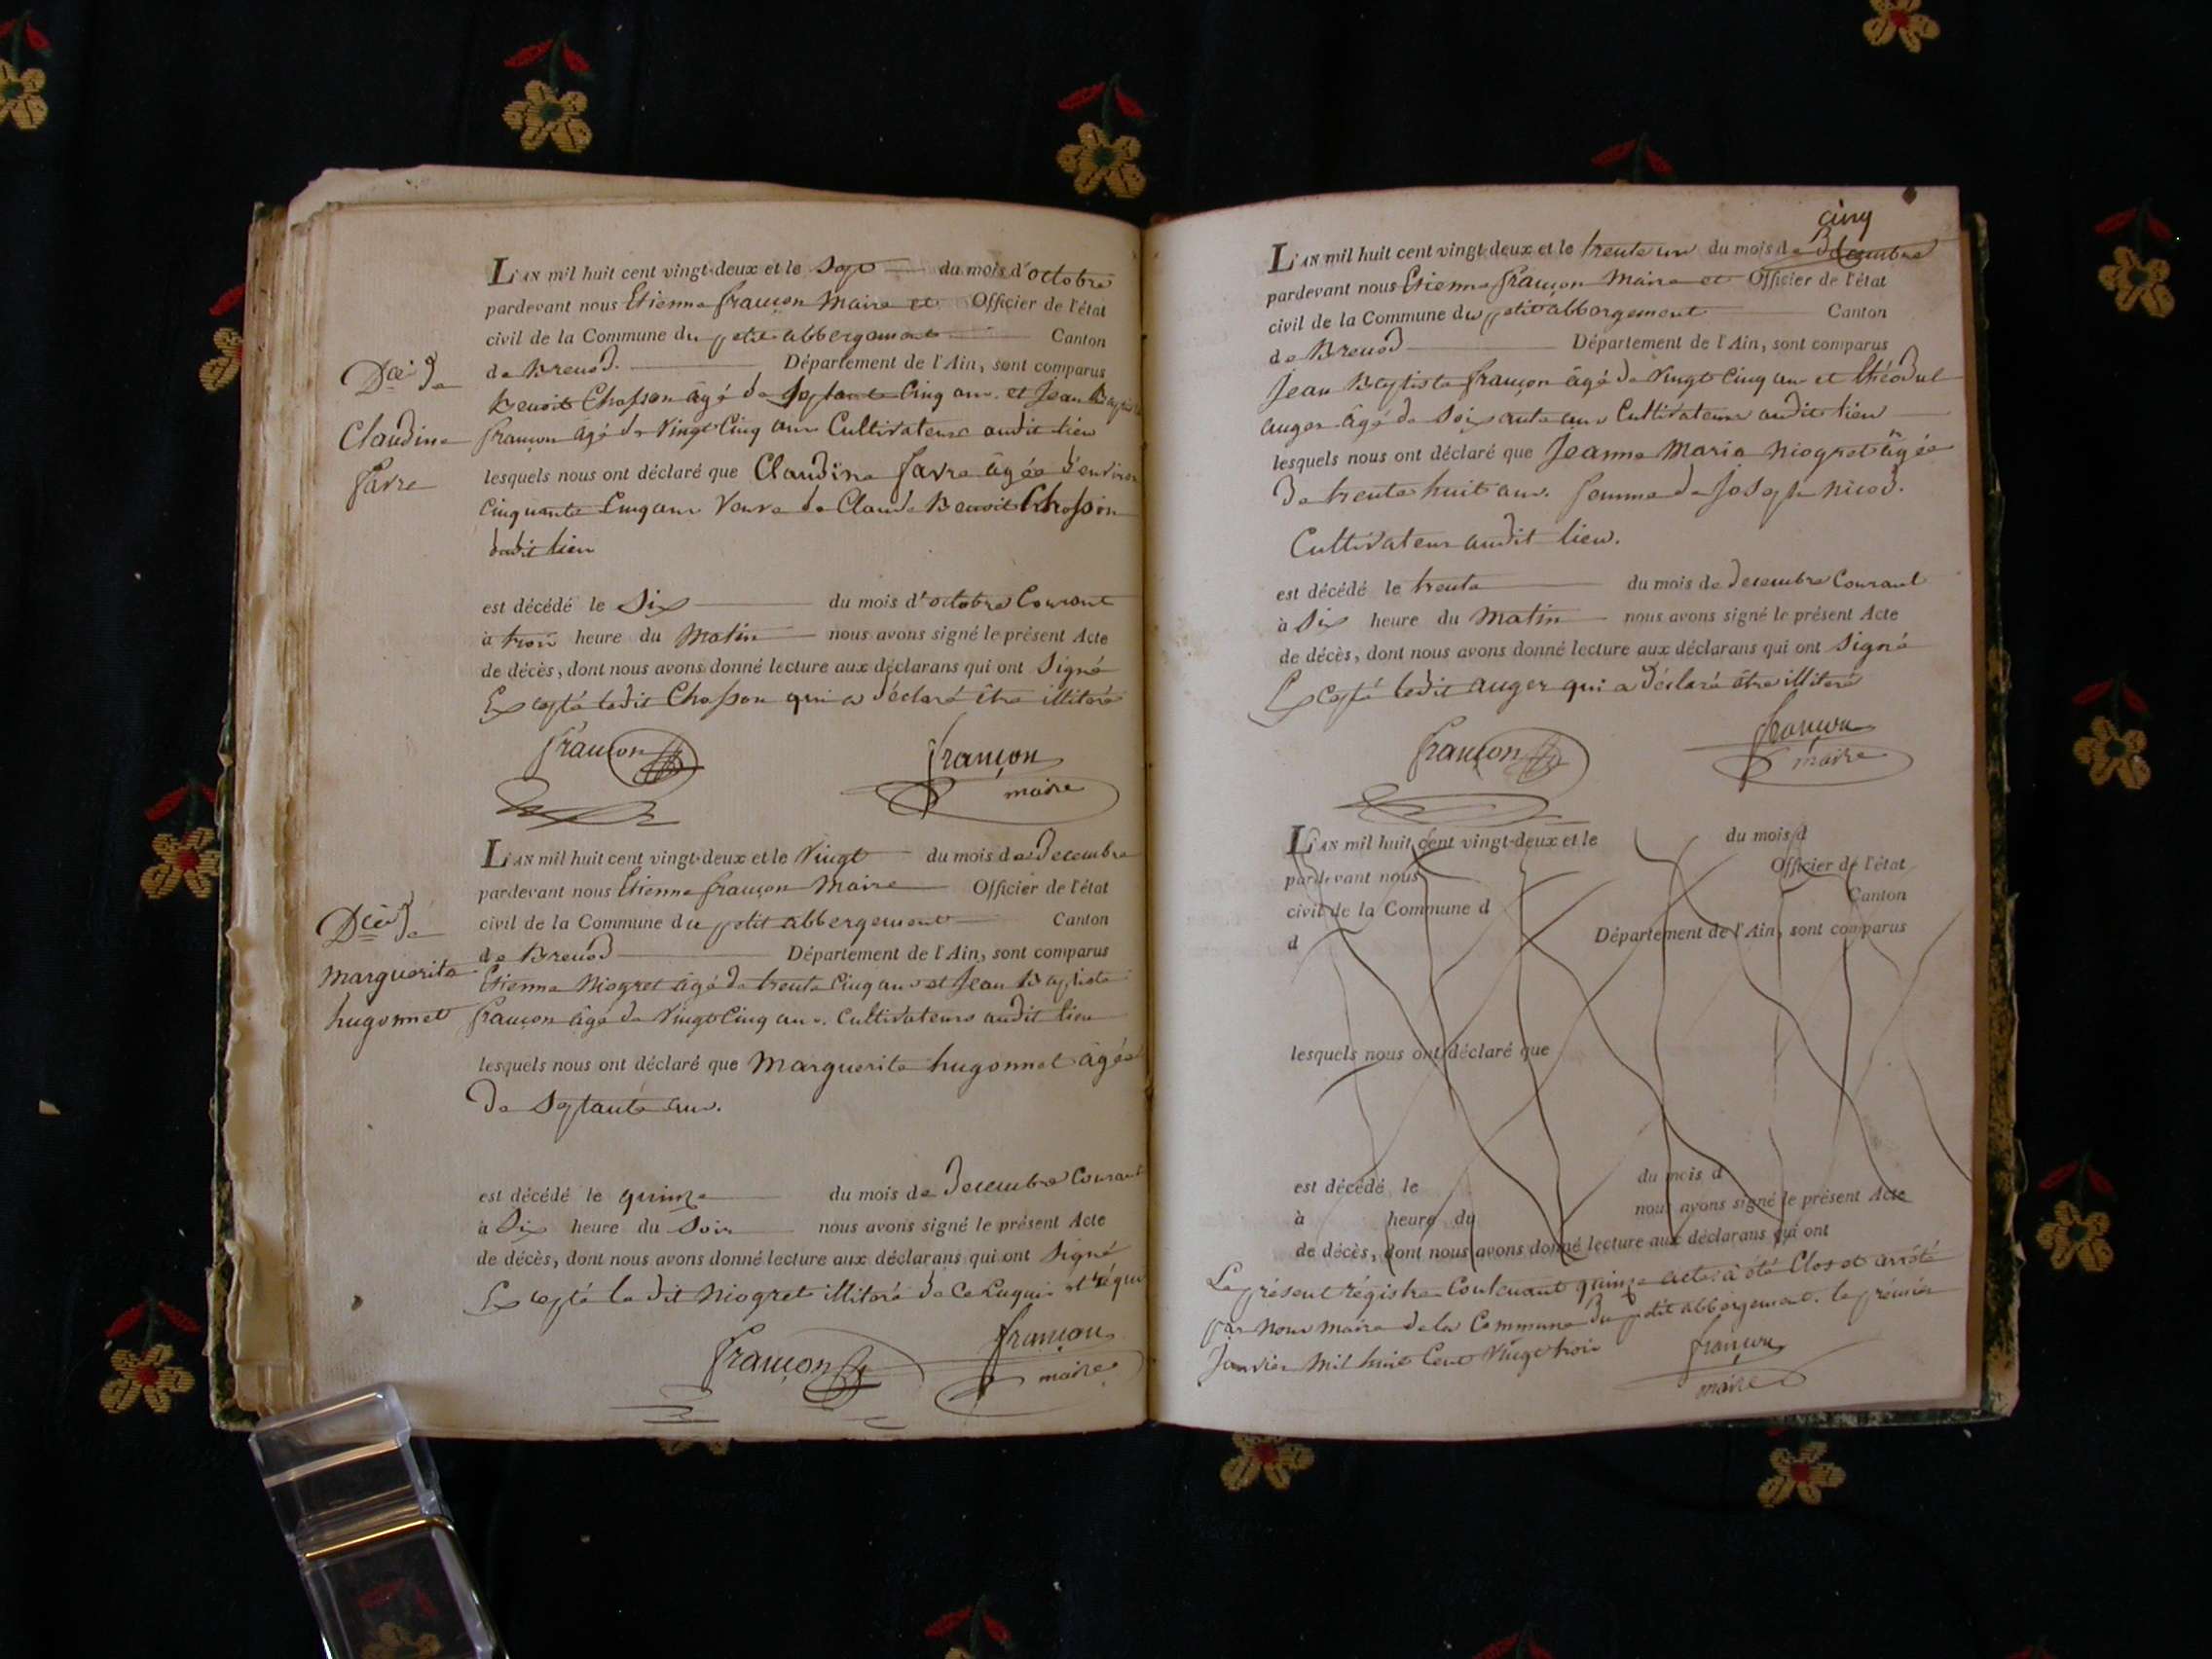 L'AN mil huit cent vingt-deux et le Sept du mois d'octobre
pardevant nous Etienne françon Maire et Officier de l'état
civil de la Commune du petit abbergement Canton
de Brenod. Département de l'Ain, sont comparus
Benoit Chosson âgé de Soptante Cinq ans. et Jean Baptiste
françon agé de Vingt Cinq ans Cultivateurs audit lieu
lesquels nous ont déclaré que Claudine favre âgée d'environ
Cinquante Cinq ans Veuve de Claude Benoit Chosson
dudit lieu
est décédé le Six du mois d'octobre Courant
à trois heure du Matin nous avons signé le présent Acte
de décès, dont nous avons donné lecture aux déclarans qui ont Signé
Excepté ledit Chosson qui a déclaré être illitéré
françon
françon
maire
Dcè de
Claudine
favre
L'AN mil huit cent vingt-deux et le Vingt du mois de Decembre
pardevant nous Etienne françon Maire Officier de l'état
civil de la Commune du petit abbergement Canton
de Brenod Département de l'Ain, sont comparus
Etienne Niogret âgé de trente Cinq ans et Jean Baptiste
françon âgé de Vingt Cinq ans. Cultivateurs audit lieu
lesquels nous ont déclaré que Marguerite hugonnet âgée
de Septante ans.
est décédé le quinze du mois de Decembre Courant
à Six heure du Soir nous avons signé le présent Acte
de décès, dont nous avons donné lecture aux déclarans qui ont Signé
Excepté le dit Niogret illitéré de ce Enquis et réquis
françon
françon
maire
Dcè de
marguerite
hugonnet
cinq
L'AN mil huit cent vingt-deux et le trente un du mois de Decembre
pardevant nous Etienne françon Maire et Officier de l'état
civil de la Commune du petit abborgement Canton
de Brenod Département de l'Ain, sont comparus
Jean Baptiste françon âgé de Vingt Cinq ans et théodul
auger âgé de Soixante ans Cultivateurs audit lieu
lesquels nous ont déclaré que Jeanne Marie Niogret âgée
de trente huit ans. femme de Joseph Nicod.
Cultivateur audit lieu.
est décédé le trente du mois de decembre Courant
à Six heure du Matin nous avons signé le présent Acte
de décès, dont nous avons donné lecture aux déclarans qui ont Signé
Excepté ledit auger qui a déclaré être illitéré
françon
françon
maire
L'AN mil huit cent vingt-deux et le du mois d
pardevant nous Officier de l'état
civil de la Commune d Canton
d Département de l'Ain, sont comparus
lesquels nous ont déclaré que
est décédé le du mois d
à heure du nous avons signé le présent Acte
de décès, dont nous avons donné lecture aux déclarans qui ont
Le présent régistre Contenant quinze actes a été Clos et arrêté
par Nous maire de la Commune du petit abbergement. le prémier
Janvier Mil huit Cent Vingt trois
françon
maire